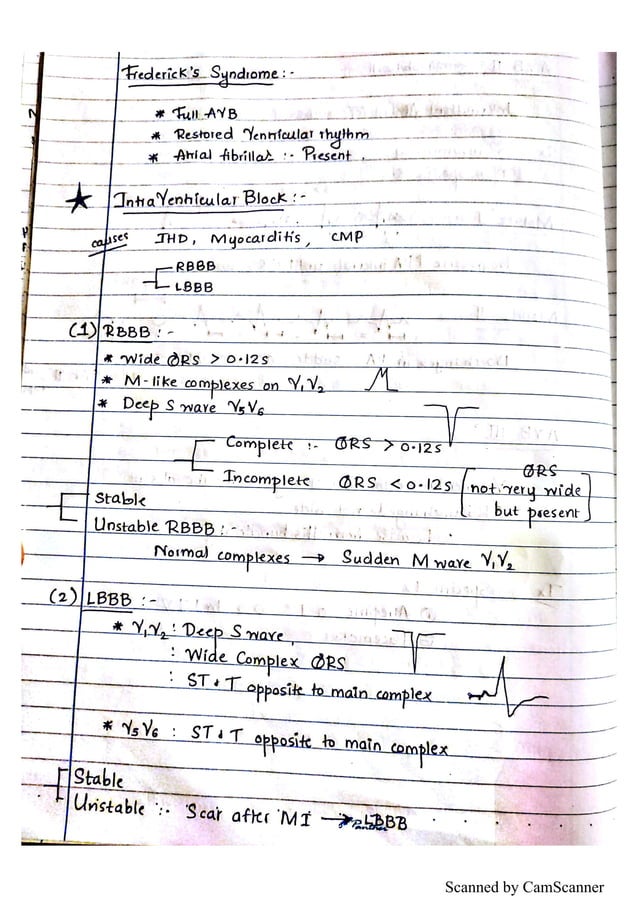 Frederick's Syndrome :-
* Full AVB
* Restored Ventricular rhythm
* Atrial fibrillat :- Present .
★ IntraVentricular Block :-
causes IHD, Myocarditis, CMP
RBBB
LBBB
(1) RBBB :-
* Wide QRS > 0.12s
* M-like complexes on V1V2
* Deep S wave V5V6
Complete :- QRS > 0.12s
Incomplete QRS < 0.12s [QRS not very wide but present]
Stable
Unstable RBBB :-
Normal complexes → Sudden M wave V1V2
(2) LBBB :-
* V1V2 : Deep S wave,
: Wide Complex QRS
: ST & T opposite to main complex
* V5V6 : ST & T opposite to main complex
Stable
Unstable :- Scar after MI → LBBB
Scanned by CamScanner